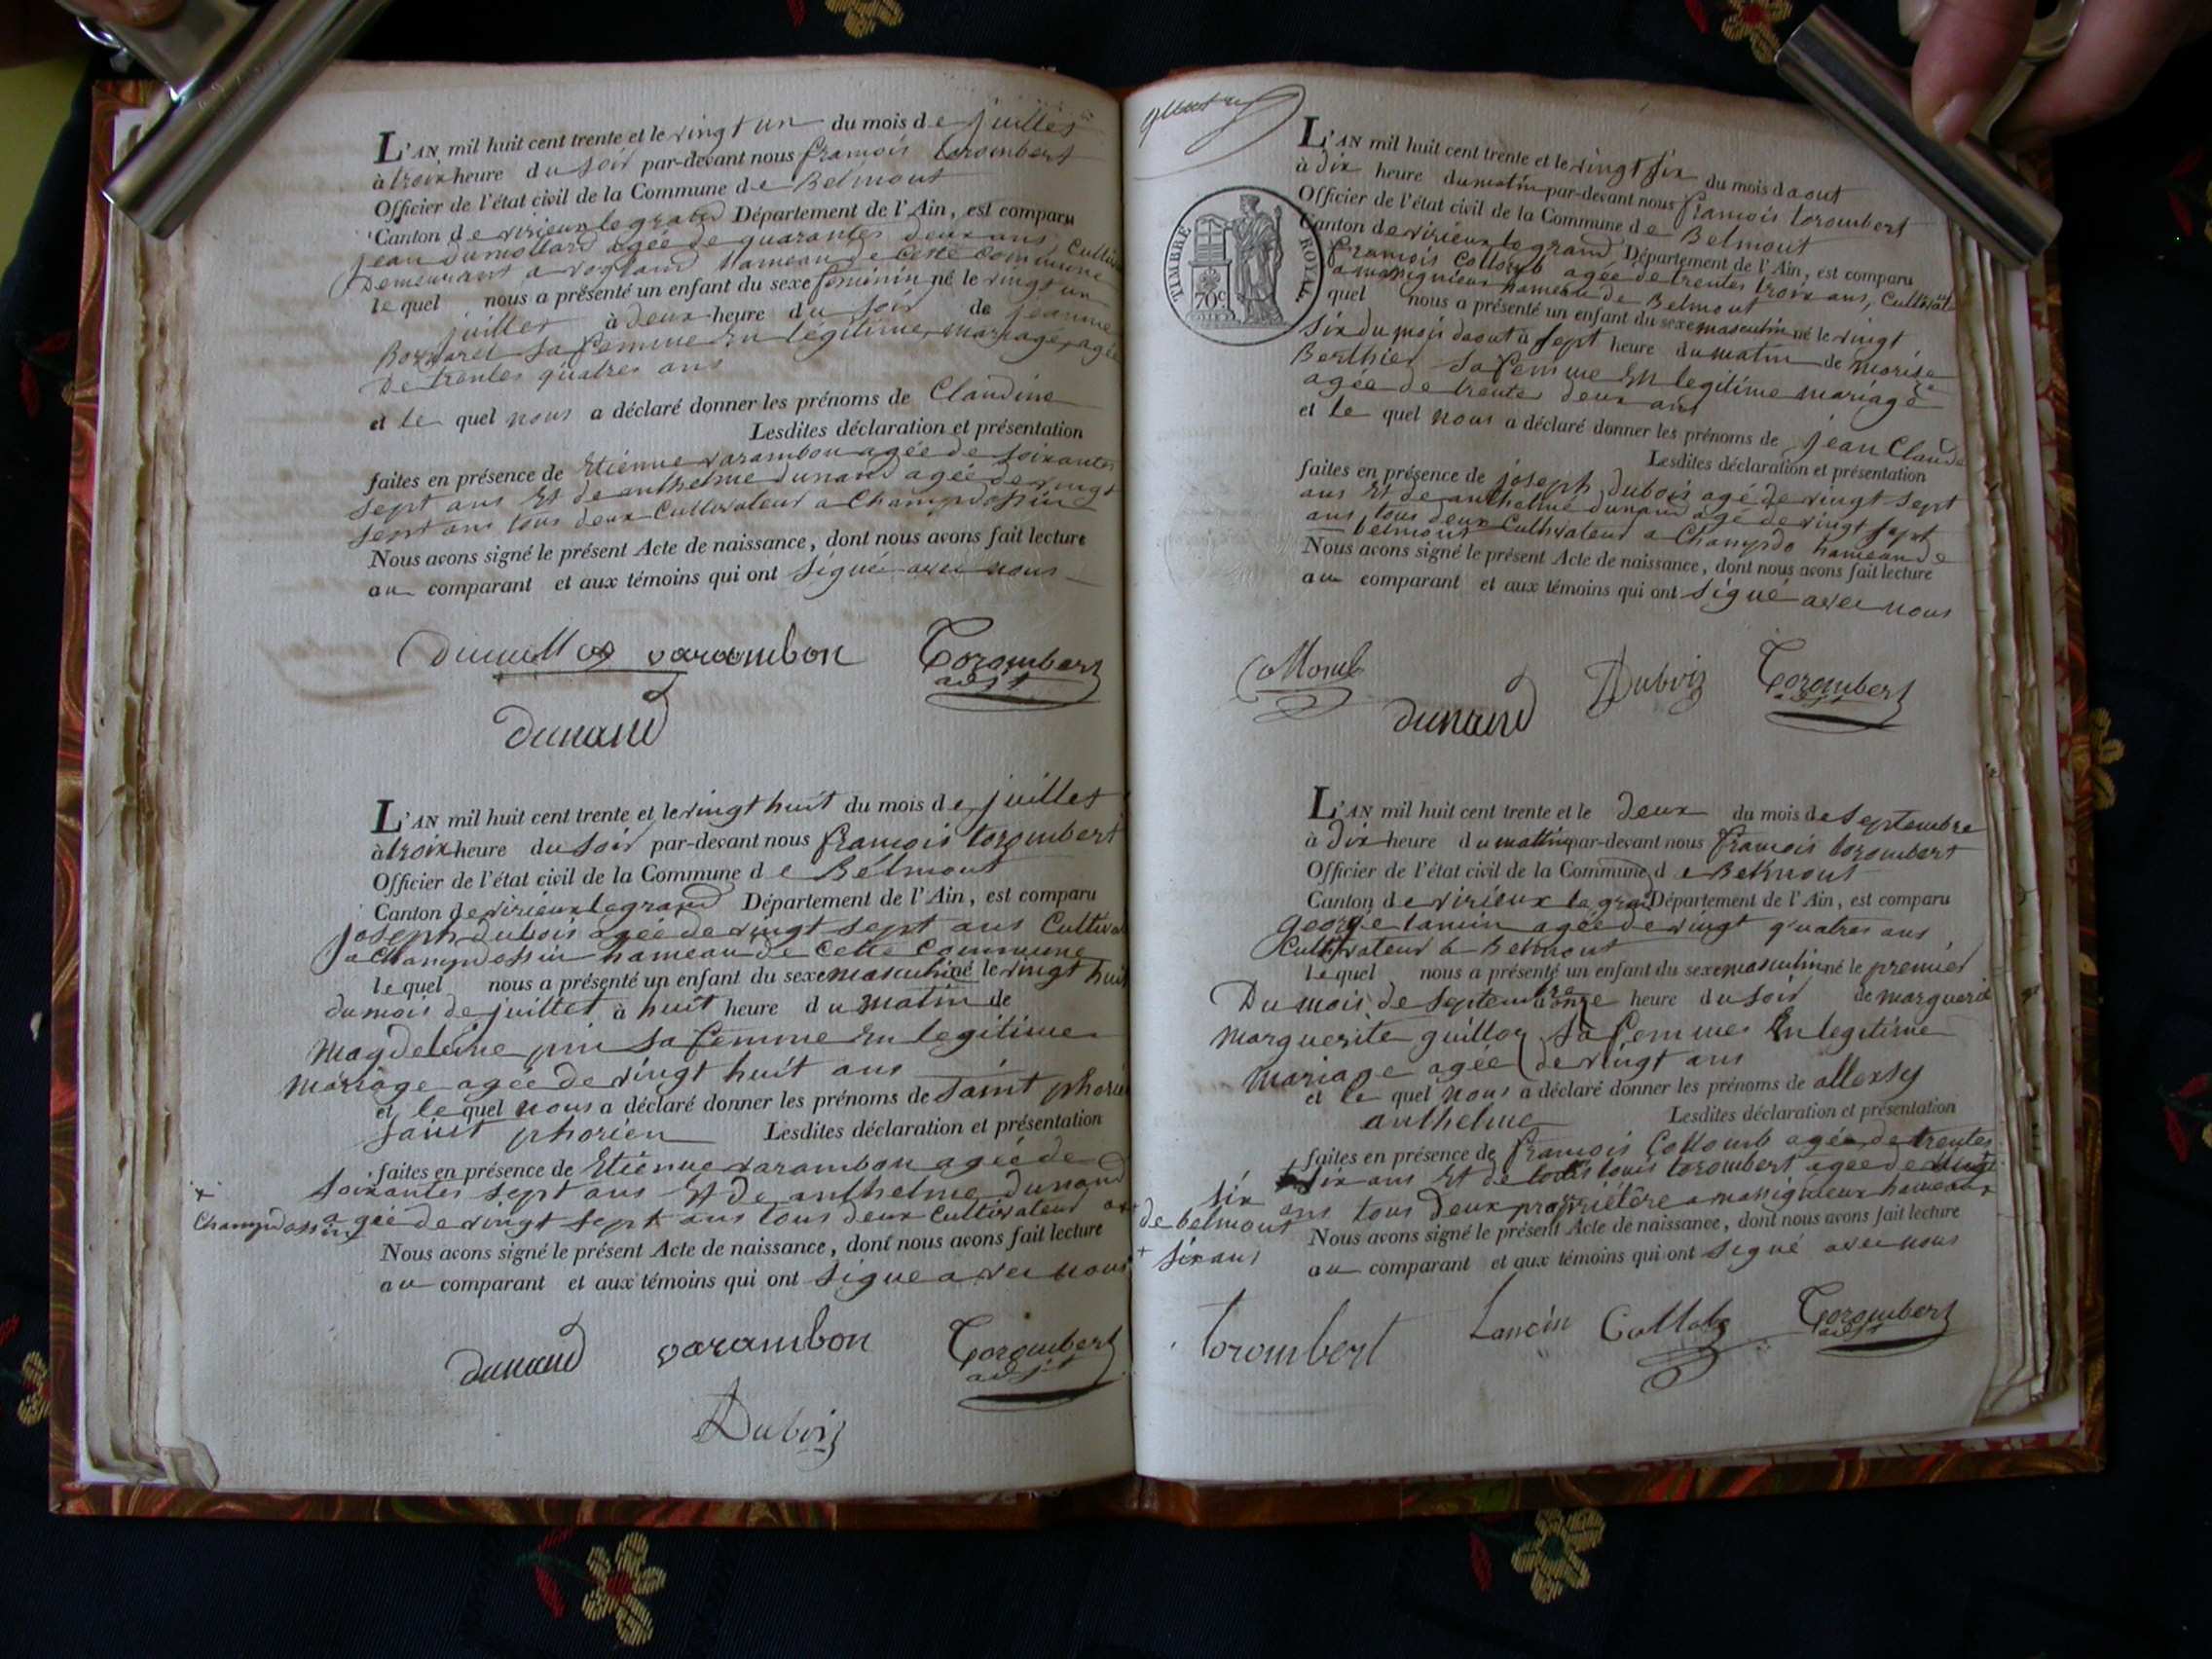 L'AN mil huit cent trente et le vingt un du mois de juillet
à troix heure du soir par-devant nous francois torombert
Officier de l'état civil de la Commune de Belmont
Canton de virieux le grand Département de l'Ain, est comparu
jean dumollard agée de quarantes deux ans, Cultiv
Demeurant a vogland hameau de Cette Commune
le quel nous a présenté un enfant du sexe feminin né le vingt un
juillet à deux heure du soir de jeanne
sa femme En légitime mariage agée
De trentes quatres ans
et le quel nous a déclaré donner les prénoms de Claudine
Lesdites déclaration et présentation
faites en présence de Etienne varambon agée de soixantes
sept ans Et de anthelme dunand agée de vingt
sept ans tous deux Cultivateur a Champdossin
Nous avons signé le présent Acte de naissance, dont nous avons fait lecture
au comparant et aux témoins qui ont signé avec nous
varambon Torombert
adjt
dunand
L'AN mil huit cent trente et le vingt huit du mois de juillet
à troix heure du soir par-devant nous francois torombert
Officier de l'état civil de la Commune de Belmont
Canton de virieux le grand Département de l'Ain, est comparu
joseph dubois agée de vingt sept ans Cultiva
a Champdossin hameau de Cette Commune
le quel nous a présenté un enfant du sexe masculin né le vingt huit
du mois de juillet à huit heure du matin de
Magdeleine pin sa femme En legitime
Mariage agée de vingt huit ans
et le quel nous a déclaré donner les prénoms de saint phorien
saint phorien Lesdites déclaration et présentation
faites en présence de Etienne varambon agée de
soixantes sept ans Et de anthelme dunand
+
Champdossin
agée de vingt sept ans tous deux Cultivateur a +
Nous avons signé le présent Acte de naissance, dont nous avons fait lecture
au comparant et aux témoins qui ont signe avec nous
dunand varambon Torombert
adjt
Dubois
TIMBRE ROYAL
70c
L'AN mil huit cent trente et le vingt six du mois daout
à dix heure du matin par-devant nous francois torombert
Officier de l'état civil de la Commune de Belmont
Canton de virieux le grand Département de l'Ain, est comparu
francois Collomb agée de trentes troix ans, Cultivat
a massignieux hameau de Belmont
quel nous a présenté un enfant du sexe masculin né le vingt
six du mois daout à sept heure du matin de marie
Berthier sa femme En legitime mariage
agée de trente deux ans
et le quel nous a déclaré donner les prénoms de jean Claude
Lesdites déclaration et présentation
faites en présence de joseph Dubois agé de vingt sept
ans Et de anthelme dunand agé de vingt sept
ans tous deux Cultivateur a Champdo hameau de
belmont
Nous avons signé le présent Acte de naissance, dont nous avons fait lecture
au comparant et aux témoins qui ont signé avec nous
Collomb
dunand Dubois Torombert
adjt
L'AN mil huit cent trente et le deux du mois de septembre
à dix heure du matin par-devant nous francois torombert
Officier de l'état civil de la Commune de Belmont
Canton de virieux le grand Département de l'Ain, est comparu
george lancin agée de vingt quatres ans
Cultivateur a Belmont
le quel nous a présenté un enfant du sexe masculin né le premier
Du mois de septembre onze heure du soir de marguerit
Marguerite guilloy sa femme En legitime
Mariage agée de vingt ans
et le quel nous a déclaré donner les prénoms de allexsy
anthelme Lesdites déclaration et présentation
faites en présence de francois Collomb agée de trentes
six ans Et de louis torombert agée de vingt
six ans tous deux propriétère a massignieux hameaux
de belmont
+ six ans
Nous avons signé le présent Acte de naissance, dont nous avons fait lecture
au comparant et aux témoins qui ont signé avec nous
torombert Lancin Collomb Torombert
adjt